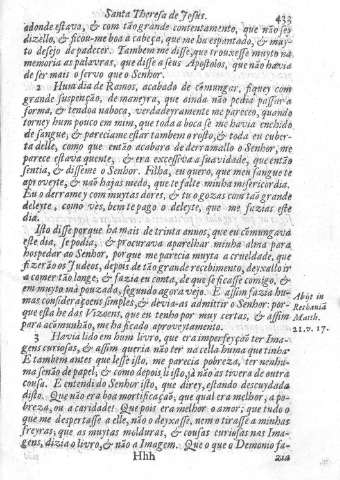 Santa Theresa de Jesus.
433
adonde estava, & com tão grande contentamento, que não sey
dizello, & ficou-me boa a cabeça, que me ha espantado, & muy-
to desejo de padecer. Tambem me disse, que trouxesse muyto na
memoria as palavras, que disse a seus Apostolos, que não havia
de ser mais o servo que o Senhor.
2 Hum dia de Ramos, acabado de cõmungar, fiquey com
grande suspenção, de maneyra, que ainda não podia passar a
forma, & tendoa na boca, verdadeyramente me pareceu, quando
torney hum pouco em mim, que toda a boca se me havia enchido
de sangue, & pareciame estar tambem o rosto, & toda eu cuber-
ta delle, como que então acabara de derramallo o Senhor, me
parece estava quente, & era excessiva a suavidade, que então
sentia, & disseme o Senhor. Filha, eu quero, que meu sangue te
aproveyte, & não hajas medo, que te falte minha misericordia.
Eu o derramey com muytas dores, & tu o gozas com tão grande
deleyte, como vès, bem te pago o deleyte, que me fazias este
dia.
Isto disse porque ha mais de trinta annos, que eu cõmungava
este dia, se podia, & procurava aparelhar minha alma para
hospedar ao Senhor, porque me parecia muyta a crueldade, que
fizerão os Judeos, depois de tão grande recebimento, deyxallo ir
a comer tão longe, & fazia eu conta, de que se ficasse comigo, &
em muyto mà pouzada, segundo agora vejo. E assim fazia hu-
mas consideraçoens simples, & devia-as admitir o Senhor: por-
que esta he das Vizoens, que eu tenho por muy certas, & assim
para a comunhão, me ha ficado aproveytamento.
Abijt in
Bethania
Matth.
21. v. 17.
3 Havia lido em hum livro, que era imperfeyção ter Ima-
gens curiosas, & assim queria não ter na cella huma que tinha.
E tambem antes que lesse isto, me parecia pobreza, ter nenhu-
ma senão de papel, & como depois li isto, jà não as tivera de outra
cousa. E entendi do Senhor isto, que direy, estando descuydada
disto. Que não era boa mortificação, que qual era melhor, a po-
breza, ou a caridade? Que pois era melhor o amor; que tudo o
que me despertasse a elle, não o deyxasse, nem o tirasse a minhas
freyras, que as muytas molduras, & cousas curiosas nas Ima-
gens, dizia o livro, & não a Imagem. Que o que o Demonio fa-
Hhh
zia